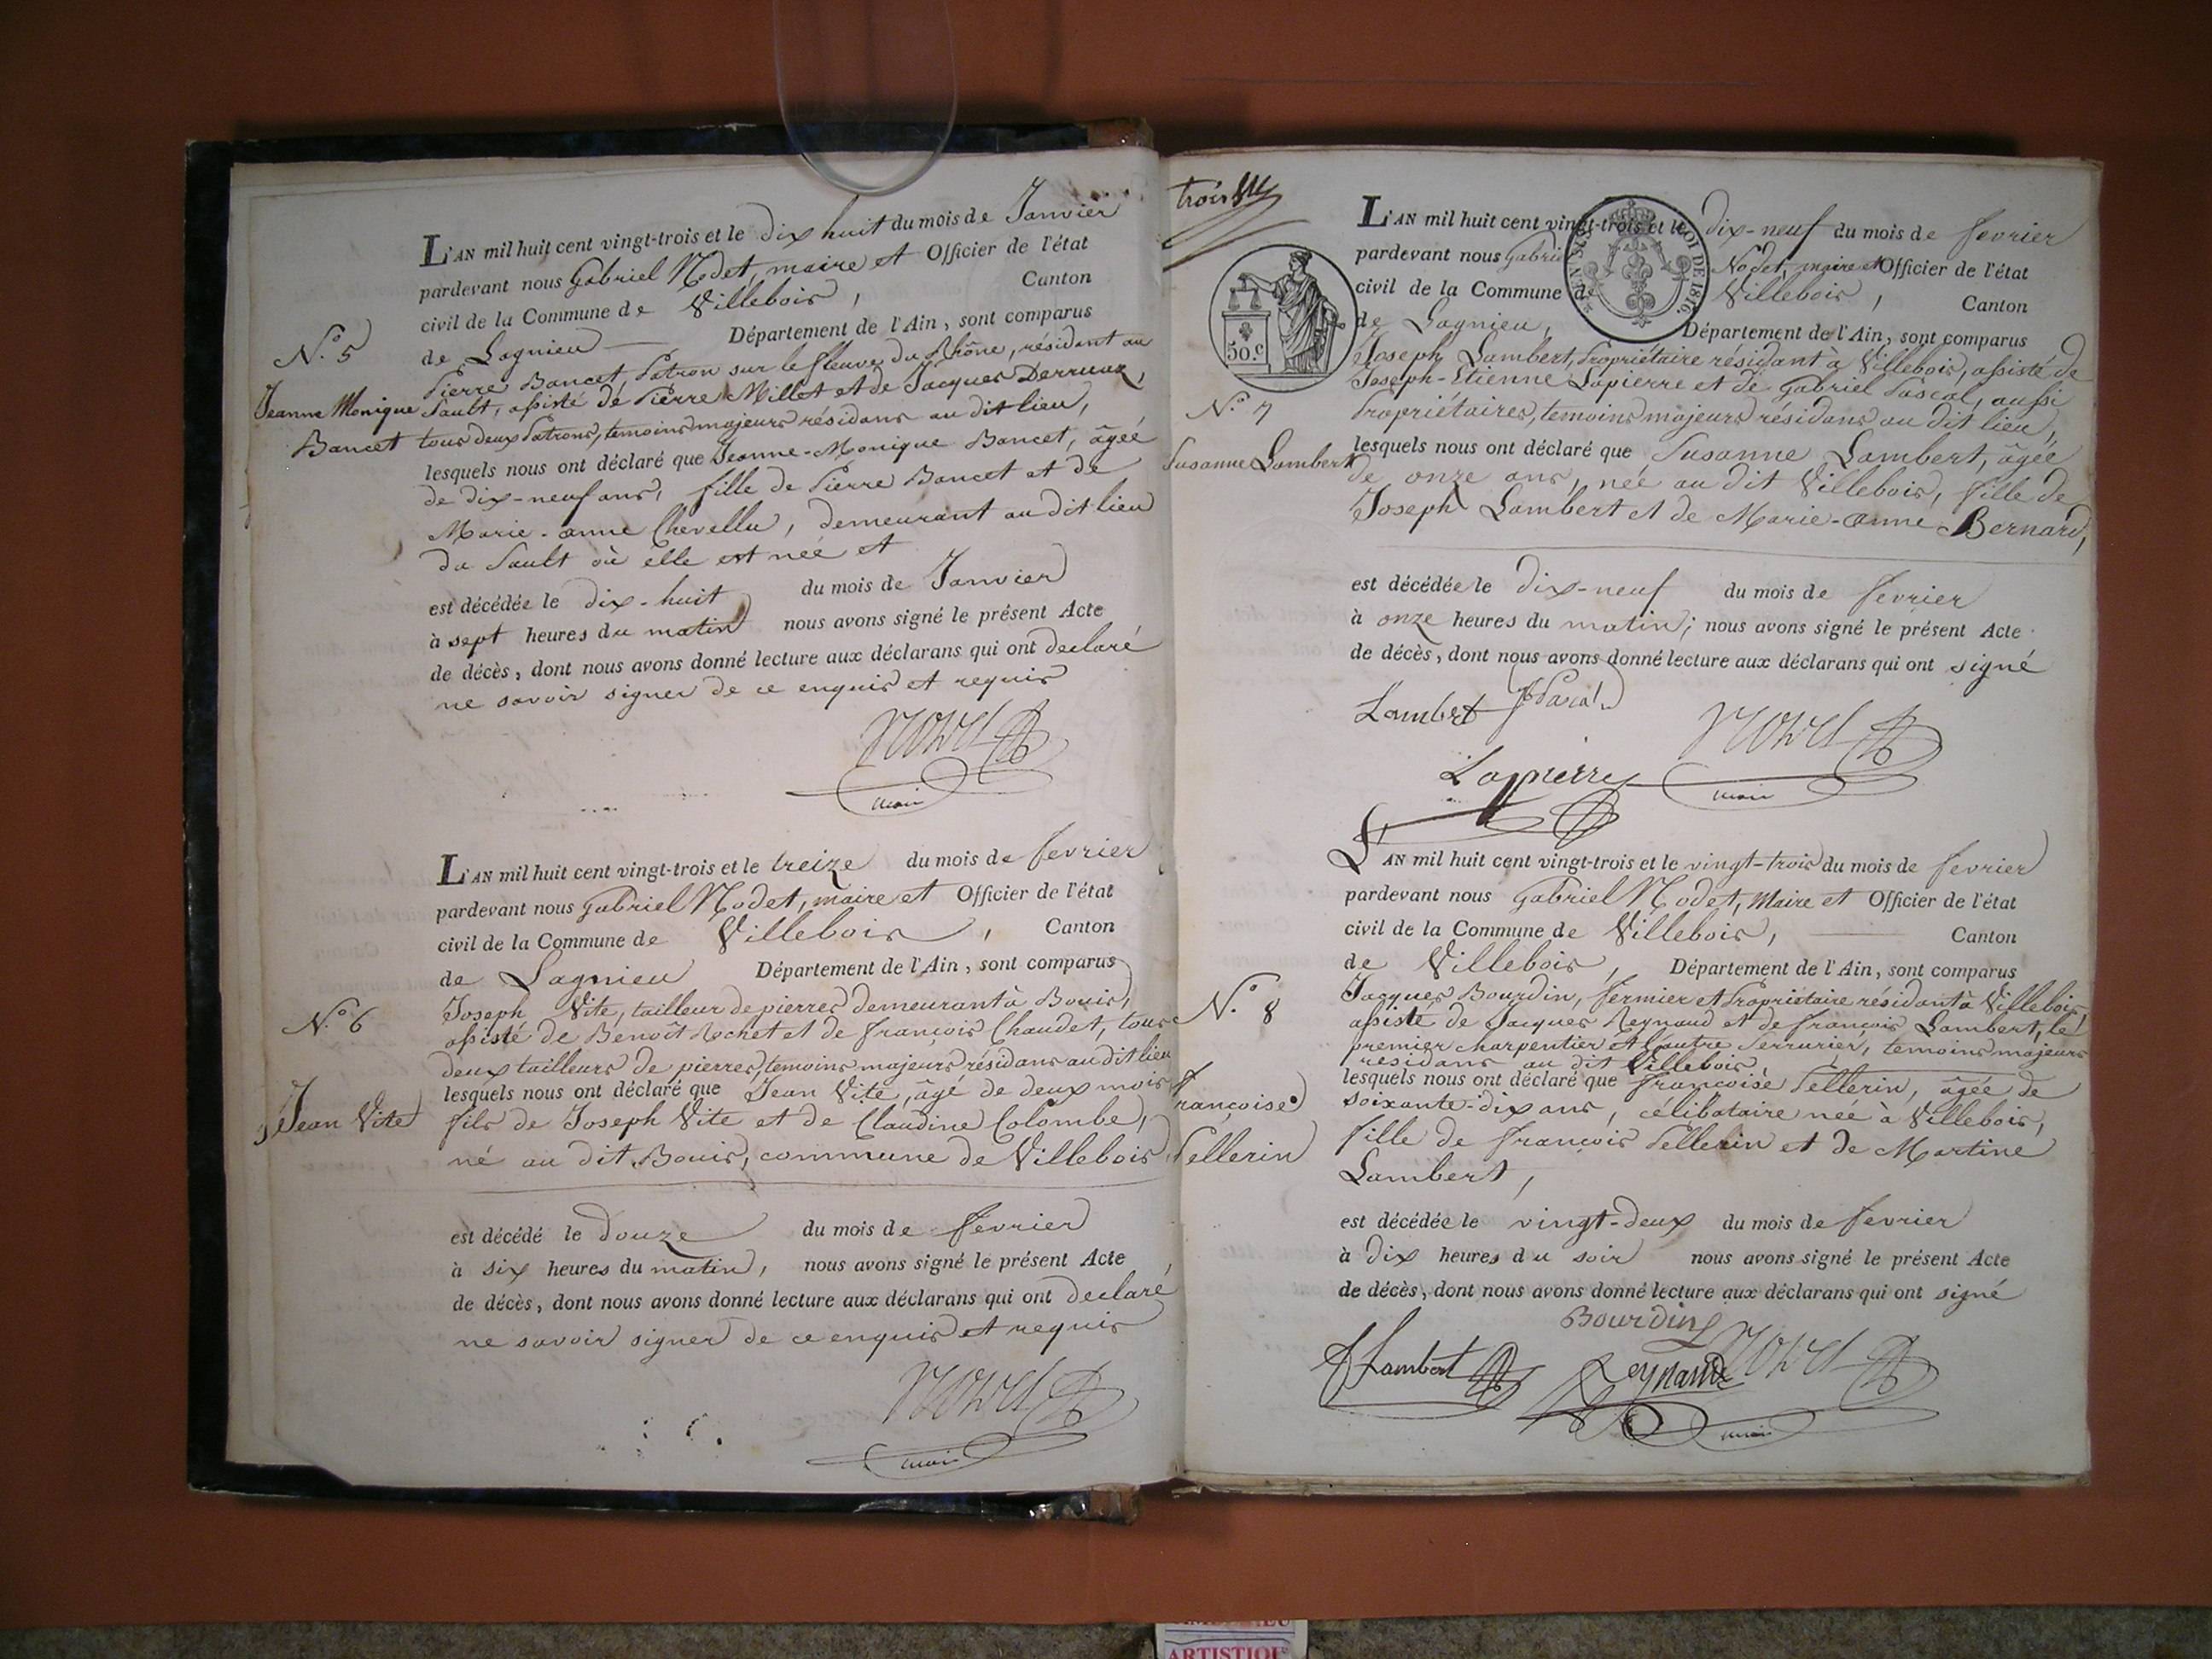 L'AN mil huit cent vingt-trois et le dix huit du mois de Janvier
pardevant nous Gabriel Nodet, maire et Officier de l'état
civil de la Commune de Villebois, Canton
de Lagnieu Département de l'Ain, sont comparus
N.º 5
Pierre Bancet Patron sur le fleuve du Rhône, résidant au
Jeanne Monique
Bancet
Sault, assisté de Pierre Millet et de Jacques Derruaz,
tous deux Patrons, temoins majeurs résidans au dit lieu,
lesquels nous ont déclaré que Jeanne-Monique Bancet, âgée
de dix-neuf ans, fille de Pierre Bancet et de
Marie-anne Chevellu, demeurant au dit lieu
du Sault où elle est née et
est décédée le dix-huit du mois de Janvier
à sept heures du matin nous avons signé le présent Acte
de décès, dont nous avons donné lecture aux déclarans qui ont declaré
ne savoir signer de ce enquis et requis
Nodet
maire
L'AN mil huit cent vingt-trois et le treize du mois de fevrier
pardevant nous Gabriel Nodet, maire et Officier de l'état
civil de la Commune de Villebois, Canton
de Lagnieu Département de l'Ain, sont comparus
N.º 6
Joseph Vite, tailleur de pierres demeurant à Bouis,
assisté de Benoît Rochet et de françois Chaudet, tous
deux tailleurs de pierres, temoins majeurs résidans au dit lieu
lesquels nous ont déclaré que Jean Vite, âgé de deux mois
Jean Vite
fils de Joseph Vite et de Claudine Colombe,
né au dit Bouis, commune de Villebois
est décédé le Douze du mois de fevrier
à six heures du matin, nous avons signé le présent Acte
de décès, dont nous avons donné lecture aux déclarans qui ont declaré
ne savoir signer de ce enquis et requis
Nodet
maire
trois
50.C
ROI DE 1816.
L'AN mil huit cent vingt-trois et le dix-neuf du mois de fevrier
pardevant nous Gabriel Nodet, maire et Officier de l'état
civil de la Commune de Villebois, Canton
de Lagnieu, Département de l'Ain, sont comparus
Joseph Lambert, Propriétaire résidant à Villebois, assisté de
Joseph-Etienne Lapierre et de Gabriel Pascal, aussi
N.º 7
Propriétaires, temoins majeurs résidans au dit lieu,
Susanne Lambert
lesquels nous ont déclaré que Susanne Lambert, âgée
de onze ans, née au dit Villebois, fille de
Joseph Lambert et de Marie-anne Bernard,
est décédée le dix-neuf du mois de fevrier
à onze heures du matin; nous avons signé le présent Acte
de décès, dont nous avons donné lecture aux déclarans qui ont signé
Lambert Pascal Nodet
Lapierre maire
L'AN mil huit cent vingt-trois et le vingt-trois du mois de fevrier
pardevant nous Gabriel Nodet, Maire et Officier de l'état
civil de la Commune de Villebois, Canton
de Villebois, Département de l'Ain, sont comparus
N.º 8
Jacques Bourdin, fermier et Propriétaire résidant à Villebois,
assisté de Jacques Reynaud et de françois Lambert, le
premier charpentier et l'autre Serrurier, temoins majeurs
résidans au dit Villebois
Françoise
Pellerin
lesquels nous ont déclaré que françoise Pellerin, âgée de
soixante-dix ans, célibataire neé à Villebois,
fille de françois Pellerin et de Martine
Lambert,
est décédée le vingt-deux du mois de fevrier
à dix heures du soir nous avons signé le présent Acte
de décès, dont nous avons donné lecture aux déclarans qui ont signé
Bourdin
f Lambert Reynaud Nodet
maire
ARTISTIQUE